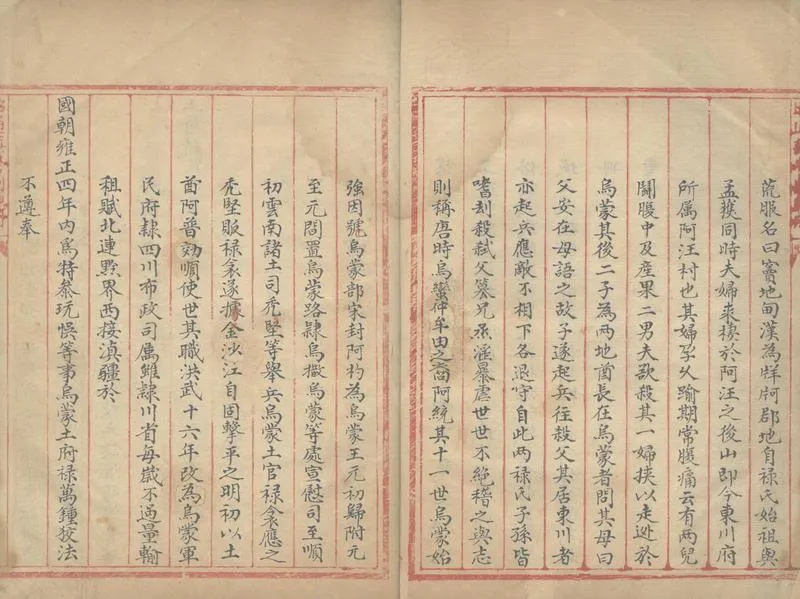 荒服名曰竇地甸漢為牂牱郡地自祿氏始祖與
孟獲同時夫婦来棲於阿汪之後山即今東川府
所屬阿汪村也其婦孕久踰期常腹痛云有兩兒
鬪腹中及産果二男夫欲殺其一婦挟以走逊於
烏蒙其後二子為兩地酋長在烏蒙者問其母曰
父安在母語之故子遂起兵往殺父其居東川者
亦起兵應敵不相下各退守自此兩祿氏子孫皆
嗜刦殺弑父簒兄烝淫暴虐世世不絶稽之輿志
則稱唐時烏蠻仲牟由之裔阿統其十一世烏蒙始
強因號烏蒙部宋封阿杓為烏蒙王元初歸附元
至元間置烏蒙路隸烏撒烏蒙等處宣慰司至順
初雲南諸土司禿堅等舉兵烏蒙土官祿余應之
禿堅脤祿余遂據金沙江自固擊平之明初以土
酋阿普効順使世其職洪武十六年改為烏蒙軍
民府隸四川布政司厲雖隸川省每嵗不過量輸
租賦北連黔界西接滇疆於
國朝雍正四年內為特叅玩悮等事烏蒙土府祿萬鍾狡法
不遵奉